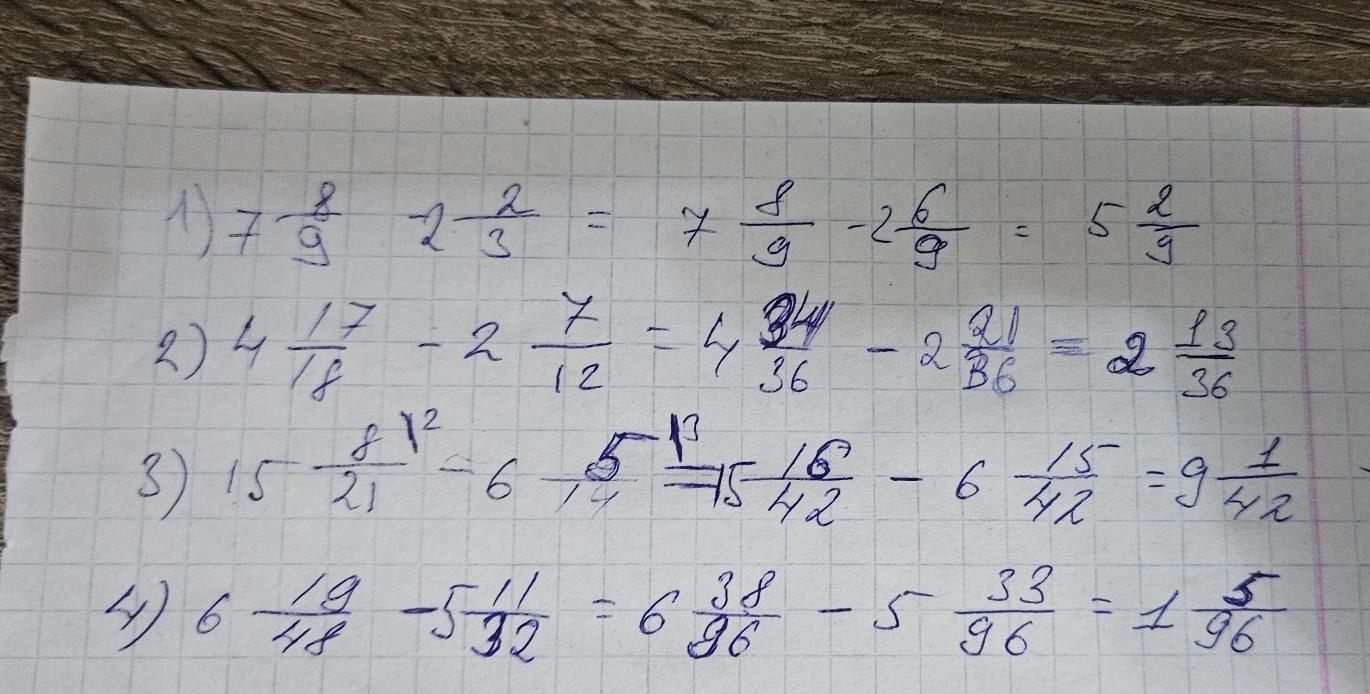 1) 7 8/9 - 2 2/3 = 7 8/9 - 2 6/9 = 5 2/9
2) 4 17/18 - 2 7/12 = 4 34/36 - 2 21/36 = 2 13/36
3) 15 8/21 \2 - 6 5/14 \3 = 15 16/42 - 6 15/42 = 9 1/42
4) 6 19/48 - 5 11/32 = 6 38/96 - 5 33/96 = 1 5/96